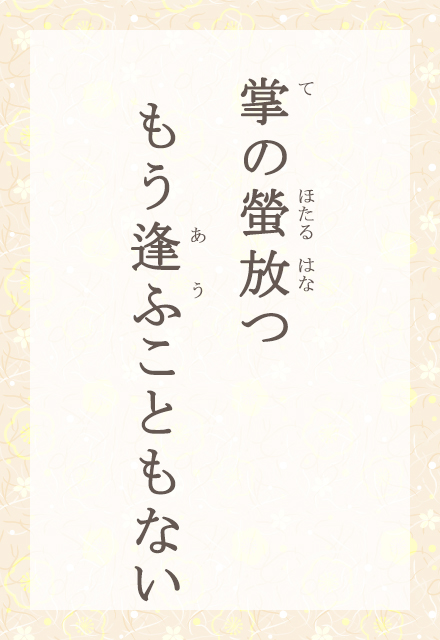 掌の螢放つ
て ほたる はな
もう逢ふこともない
あ う